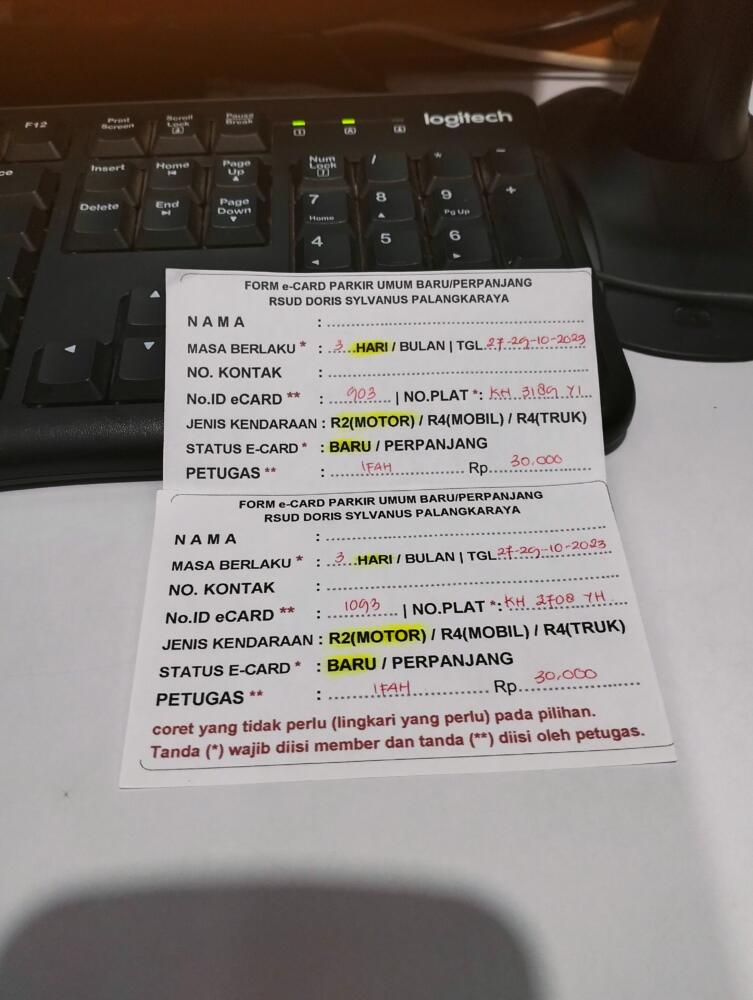 F12
Print Screen
Scroll Lock
Pause Break
logitech
Insert
Home
Page Up
Num Lock
/
*
-
Delete
End
Page Down
7 Home
8
9 Pg Up
+
4
5
6
FORM e-CARD PARKIR UMUM BARU/PERPANJANG
RSUD DORIS SYLVANUS PALANGKARAYA
NAMA :
MASA BERLAKU * : 3 HARI / BULAN | TGL 27-29-10-2023
NO. KONTAK :
No.ID eCARD ** : 903 | NO.PLAT *: KH 3189 YI
JENIS KENDARAAN : R2(MOTOR) / R4(MOBIL) / R4(TRUK)
STATUS E-CARD * : BARU / PERPANJANG
PETUGAS ** : IFAH Rp 30.000
FORM e-CARD PARKIR UMUM BARU/PERPANJANG
RSUD DORIS SYLVANUS PALANGKARAYA
NAMA :
MASA BERLAKU * : 3 HARI / BULAN | TGL 27-29-10-2023
NO. KONTAK :
No.ID eCARD ** : 1093 | NO.PLAT *: KH 2708 YH
JENIS KENDARAAN : R2(MOTOR) / R4(MOBIL) / R4(TRUK)
STATUS E-CARD * : BARU / PERPANJANG
PETUGAS ** : IFAH Rp 30.000
coret yang tidak perlu (lingkari yang perlu) pada pilihan.
Tanda (*) wajib diisi member dan tanda (**) diisi oleh petugas.